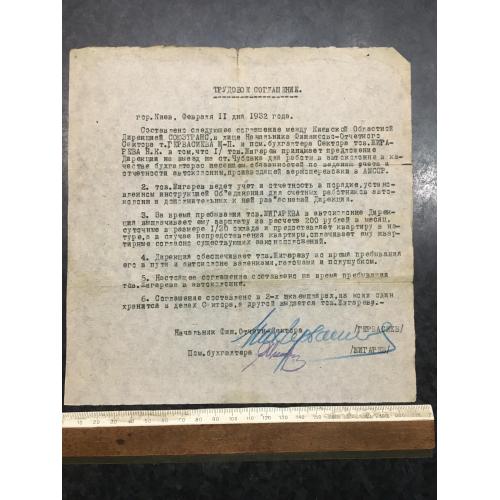 ТРУДОВОЕ СОГЛАШЕНИЕ.
гор.Киев, Февраля 11 дня 1932 года.
Составлено следующее соглашение между Киевской Областной
Дирекцией СОЮЗТРАНС, в лице Начальника Финансово-Отчетного
Сектора т.ГЕРВАСИЕВА и пом.бухгалтера Сектора тов.ЖИГА-
РЕВА Н.К. в том, что 1/ тов.Жигарев принимает предложение
Дирекции на выезд на ст.Чубовка для работы в автоколонне в ка-
честве бухгалтера с несением обязанностей по ведению учета и
отчетности автоколонны, производящей зерноперевозки в АМССР.
2. тов.Жигарев ведет учет и отчетность в порядке, уста-
новленном инструкцией Об"единения для счетных работников авто-
колонн и дополнительных к ней раз"яснений Дирекции.
3. За время пребывания тов.ЖИГАРЕВА в автоколонне Дирек-
ция выплачивает ему зарплату из расчета 200 рублей в месяц,
суточные в размере 1/20 оклада и предоставляет квартиру в на-
туре, а в случае непредставления квартиры, оплачивает ему квар-
тирные согласно существующих законоположений.
4. Дирекция обеспечивает тов.Жигареву во время пребывания
его в пути и автоколонне валенками, галошами и полушубком.
5. Настоящее соглашение составлено на время пребывания
тов.Жигарева в автоколонне.
6. Соглашение составлено в 2-х экземплярах, из коих один
хранится в делах Сектора, а другой выдается тов.Жигареву.-
Начальник Фин.Отчетн.Сектора /ГЕРВАСИЕВ/
Пом.бухгалтера /ЖИГАРЕВ/
10 20 30 40 50 60 70 80 90 100 110 120 130 140 150 160 170 180 190 200 210 220 230